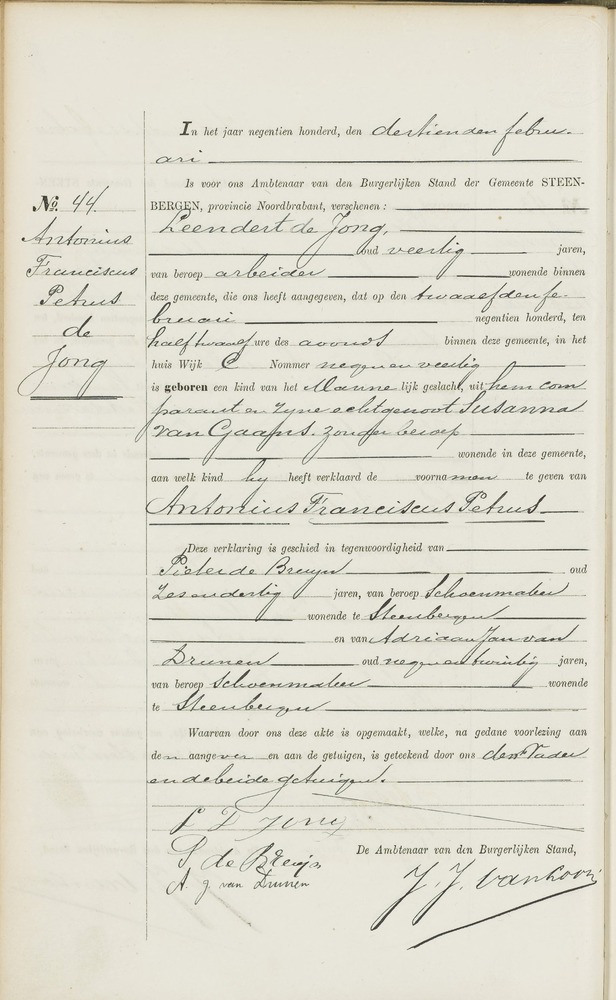 In het jaar negentien honderd, den dertienden febru-
ari
Is voor ons Ambtenaar van den Burgerlijken Stand der Gemeente STEEN-
No. 44.
BERGEN, provincie Noordbrabant, verschenen:
Antonius
Franciscus
Petrus
de
Jong
Leendert de Jong,
oud veertig jaren,
van beroep arbeider wonende binnen
deze gemeente, die ons heeft aangegeven, dat op den twaalfden fe-
bruari negentien honderd, ten
half twaalf ure des avonds binnen deze gemeente, in het
huis Wijk C Nommer negen en veertig
is geboren een kind van het Manne lijk geslacht, uit hem com
parant en zyne echtgenoot Susanna
van Gaans. zonder beroep
wonende in deze gemeente,
aan welk kind hy heeft verklaard de voorna men te geven van
Antonius Franciscus Petrus
Deze verklaring is geschied in tegenwoordigheid van
Pieter de Bruyn oud
zes en dertig jaren, van beroep Schoenmaker
wonende te Steenbergen
en van Adriaan Jan van
Drunen oud negen en twintig jaren,
van beroep Schoenmaker wonende
te Steenbergen
Waarvan door ons deze akte is opgemaakt, welke, na gedane voorlezing aan
den aangever en aan de getuigen, is geteekend door ons den Vader
en de beide getuigen.
L D Jong
P de Bruijn
A. J. van Drunen
De Ambtenaar van den Burgerlijken Stand,
J. J. van